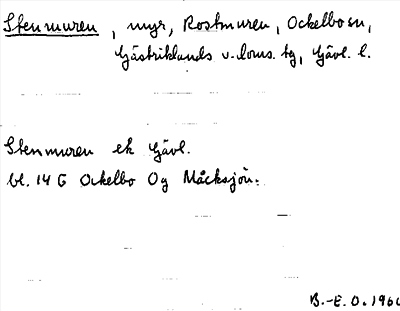 Stenmuren, myr, Rostmuren, Ockelbo sn,
Gästriklands v. doms. tg, Gävl. l.
Stenmuren ek Gävl.
bl. 14 G Ockelbo Og Måcksjön.
B.-E. O. 1960